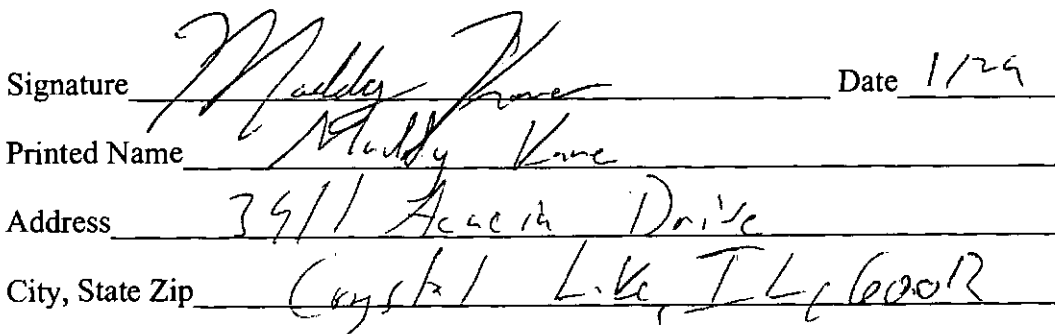 Signature Maddy Kane Date 1/29
Printed Name Maddy Kane
Address 3911 Acacia Drive
City, State Zip Crystal Lake, IL, 60012